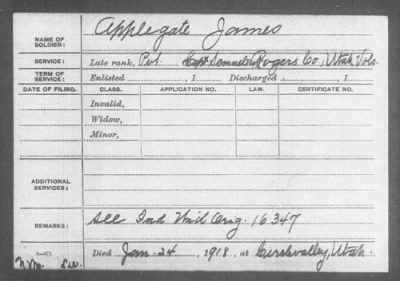 NAME OF SOLDIER: Applegate James
SERVICE: Late rank, Pvt. Capt Samuel Rogers Co., Utah Vols.
TERM OF SERVICE: Enlisted , 1 Discharged , 1
DATE OF FILING. CLASS. APPLICATION NO. LAW. CERTIFICATE NO.
Invalid,
Widow,
Minor,
ADDITIONAL SERVICES:
REMARKS: See Ind. Unid Orig. 16347
Died Jan. 24, 1918, at Circlevalley, Utah.